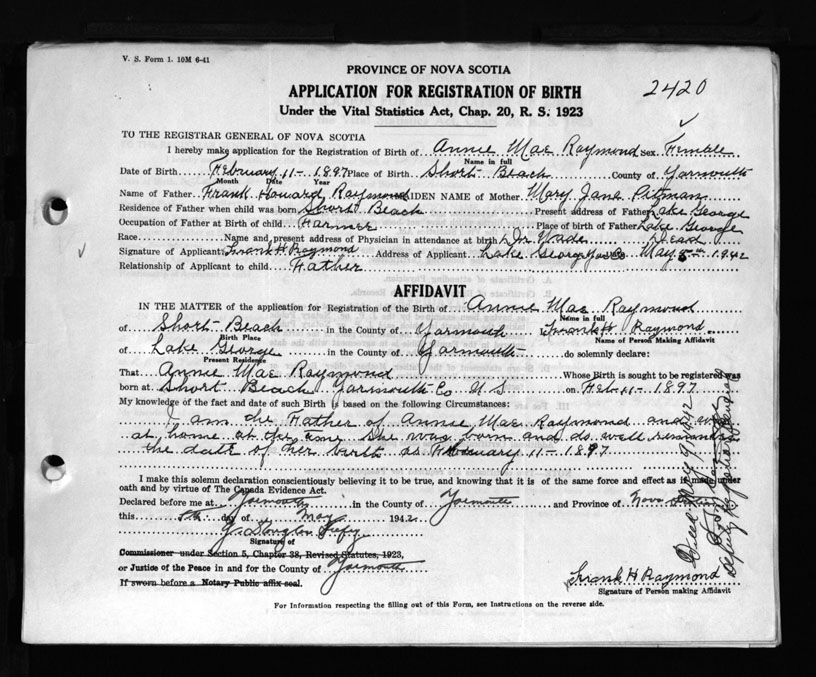 V. S. Form 1. 10M 6-41
PROVINCE OF NOVA SCOTIA
APPLICATION FOR REGISTRATION OF BIRTH
2420
Under the Vital Statistics Act, Chap. 20, R. S. 1923
TO THE REGISTRAR GENERAL OF NOVA SCOTIA
I hereby make application for the Registration of Birth of Annie Mae Raymond Sex Female
Name in full
Date of Birth February 11 - 1897 Place of Birth Short Beach County of Yarmouth
Month Date Year
Name of Father Frank Howard Raymond MAIDEN NAME of Mother Mary Jane Pitman
Residence of Father when child was born Short Beach Present address of Father Lake George
Occupation of Father at Birth of child Farmer Place of birth of Father Lake George
Race Name and present address of Physician in attendance at birth Wade Dead
Signature of Applicant Frank H Raymond Address of Applicant Lake George Yar Co May 5 1942
Relationship of Applicant to child Father
AFFIDAVIT
IN THE MATTER of the application for Registration of the Birth of Annie Mae Raymond
Name in full
of Short Beach in the County of Yarmouth I Frank H Raymond
Birth Place Name of Person Making Affidavit
of Lake George in the County of Yarmouth do solemnly declare:
Present Residence
That Annie Mae Raymond Whose Birth is sought to be registered was
born at Short Beach Yarmouth Co N S on Feb 11 - 1897
My knowledge of the fact and date of such Birth is based on the following Circumstances:
I am the Father of Annie Mae Raymond and was
at home at the time she was born and do well remember
the date of her birth as February 11 - 1897
I make this solemn declaration conscientiously believing it to be true, and knowing that it is of the same force and effect as if made under
oath and by virtue of The Canada Evidence Act.
Declared before me at Yarmouth in the County of Yarmouth and Province of Nova Scotia
this 5th day of May 1942
Douglas
Signature of
Commissioner under Section 5, Chapter 38, Revised Statutes, 1923,
or Justice of the Peace in and for the County of Yarmouth
If sworn before a Notary Public affix seal.
Frank H Raymond
Signature of Person making Affidavit
For Information respecting the filling out of this Form, see Instructions on the reverse side.
May 9, 1942
Deputy Registrar